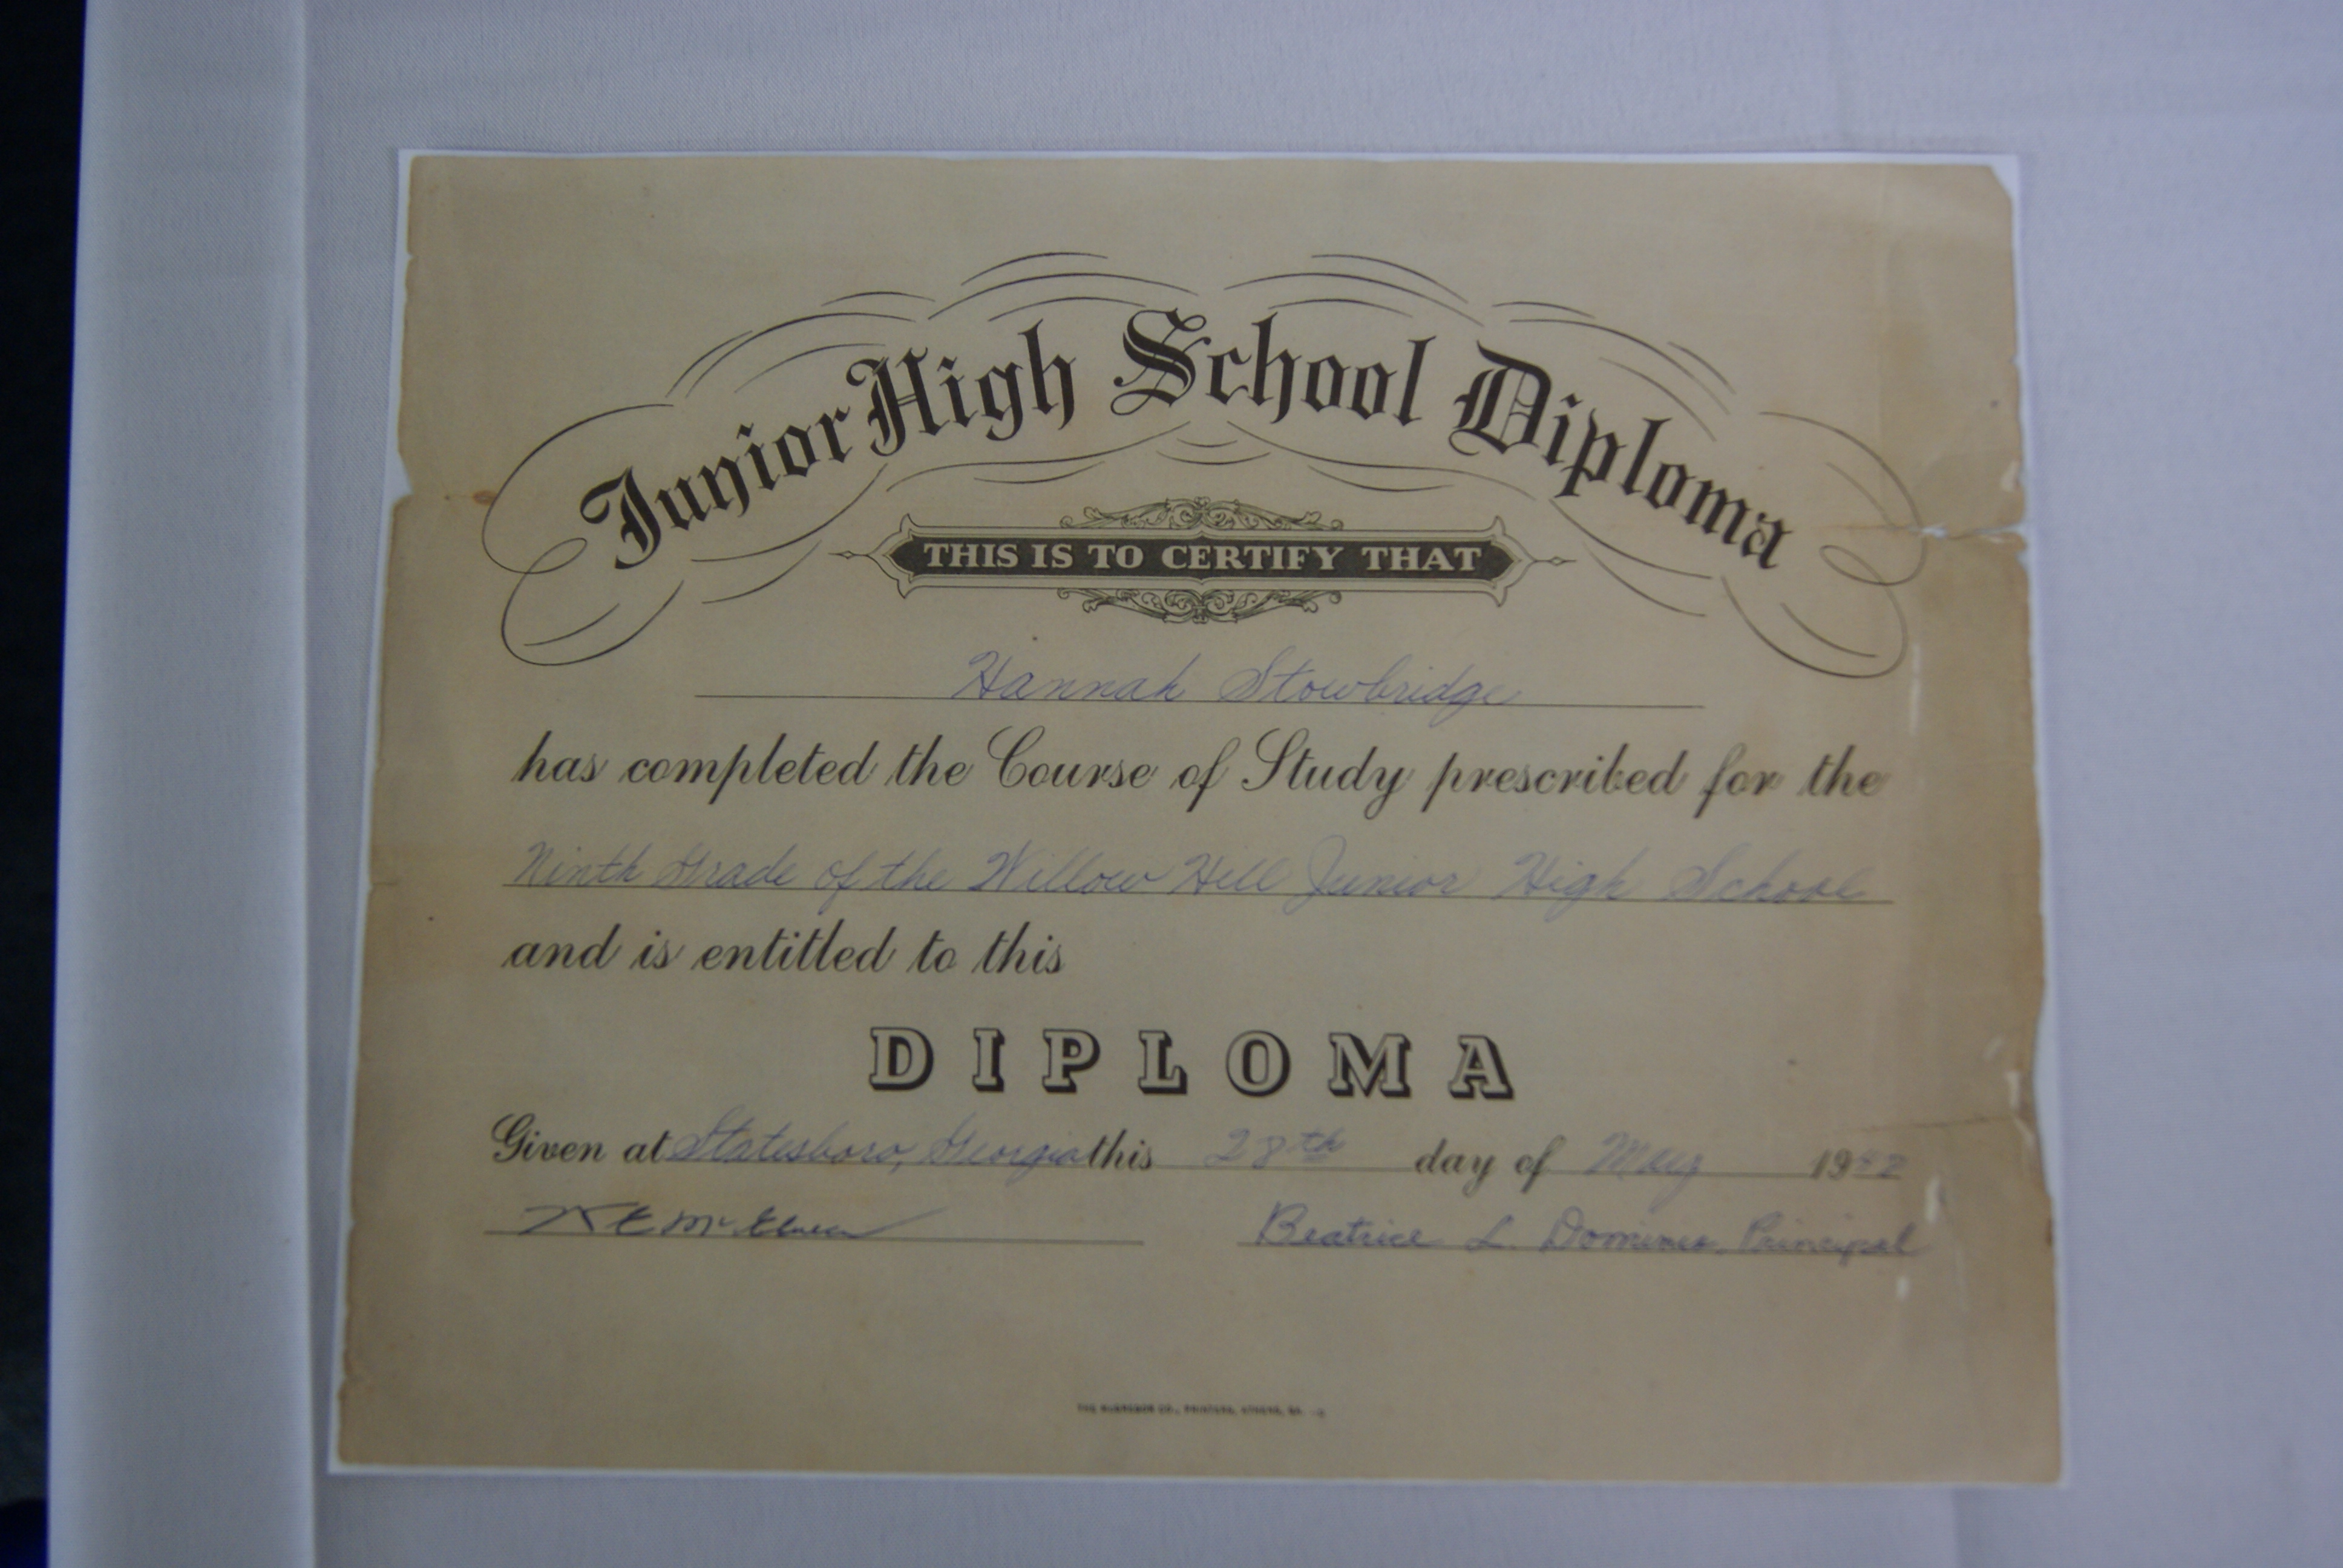 Junior High School Diploma
THIS IS TO CERTIFY THAT
Hannah Stowbridge
has completed the Course of Study prescribed for the
Ninth Grade of the Willow Hill Junior High School
and is entitled to this
DIPLOMA
Given at Statesboro, Georgia this 28th day of May 1942
Beatrice L. Principal
THE MCGREGOR CO., PRINTERS, ATHENS, GA.